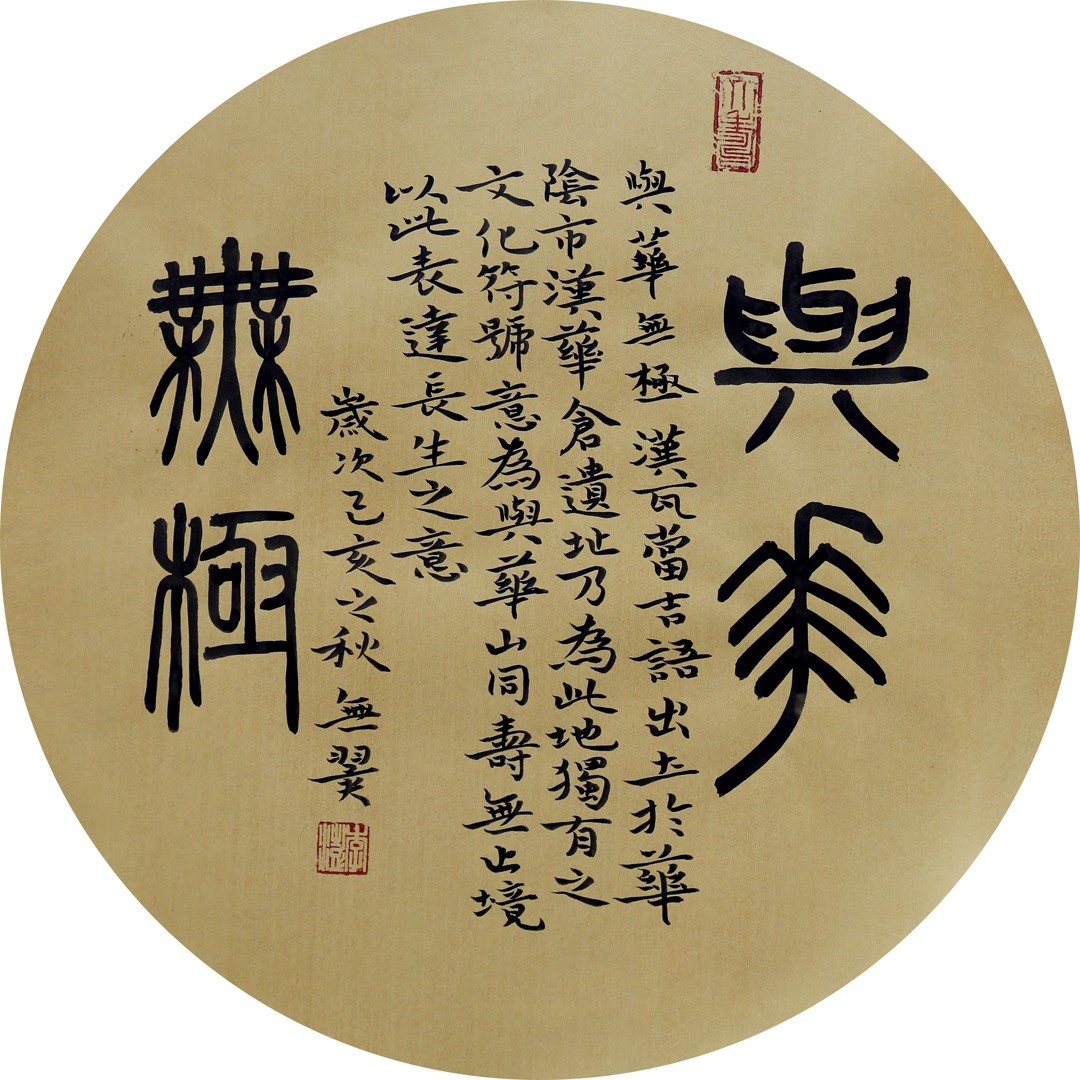 與華
無極
與華無極漢瓦當吉語出土於華
陰市漢華倉遺址乃為此地獨有之
文化符號意為與華山同壽無止境
以此表達長生之意
歲次己亥之秋無翼